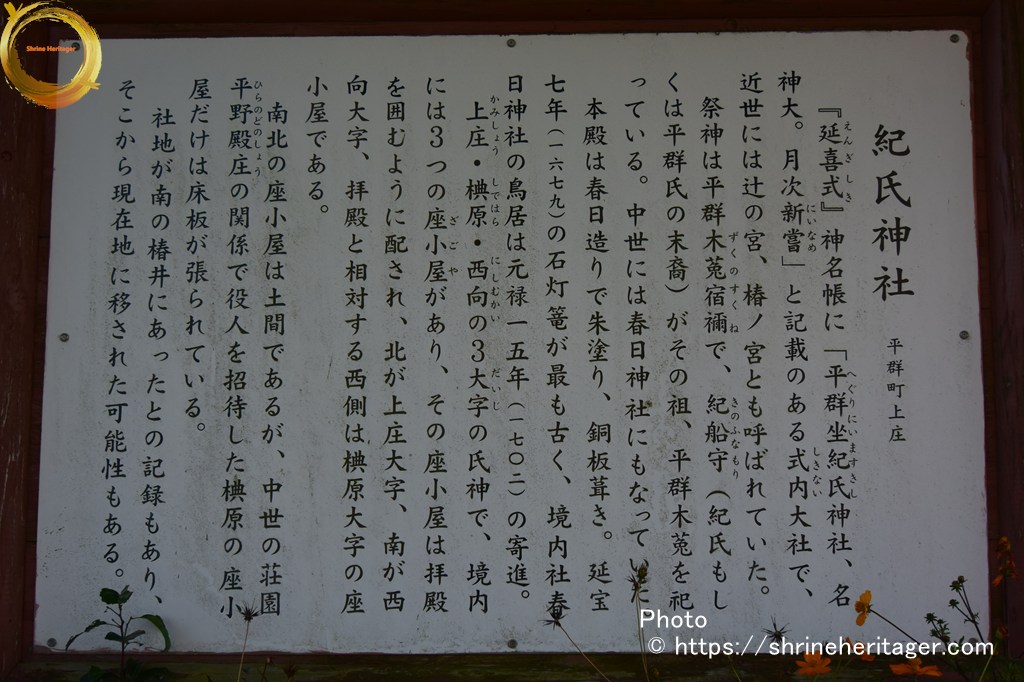 Shrine Heritager
紀氏神社 平群町上庄
『延喜式』神名帳に「平群坐紀氏神社、名
神大。月次新嘗」と記載のある式内大社で、
近世には辻の宮、椿ノ宮とも呼ばれていた。
祭神は平群木菟宿禰で、紀船守（紀氏もし
くは平群氏の末裔）がその祖、平群木菟を祀
っている。中世には春日神社にもなっていた。
本殿は春日造りで朱塗り、銅板葺き。延宝
七年（一六七九）の石灯篭が最も古く、境内社春
日神社の鳥居は元禄一五年（一七〇二）の寄進。
上庄・椣原・西向の3大字の氏神で、境内
には3つの座小屋があり、その座小屋は拝殿
を囲むように配され、北が上庄大字、南が西
向大字、拝殿と相対する西側は椣原大字の座
小屋である。
南北の座小屋は土間であるが、中世の荘園
平野殿庄の関係で役人を招待した椣原の座小
屋だけは床板が張られている。
社地が南の椿井にあったとの記録もあり、
そこから現在地に移された可能性もある。
Photo
© https://shrineheritager.com